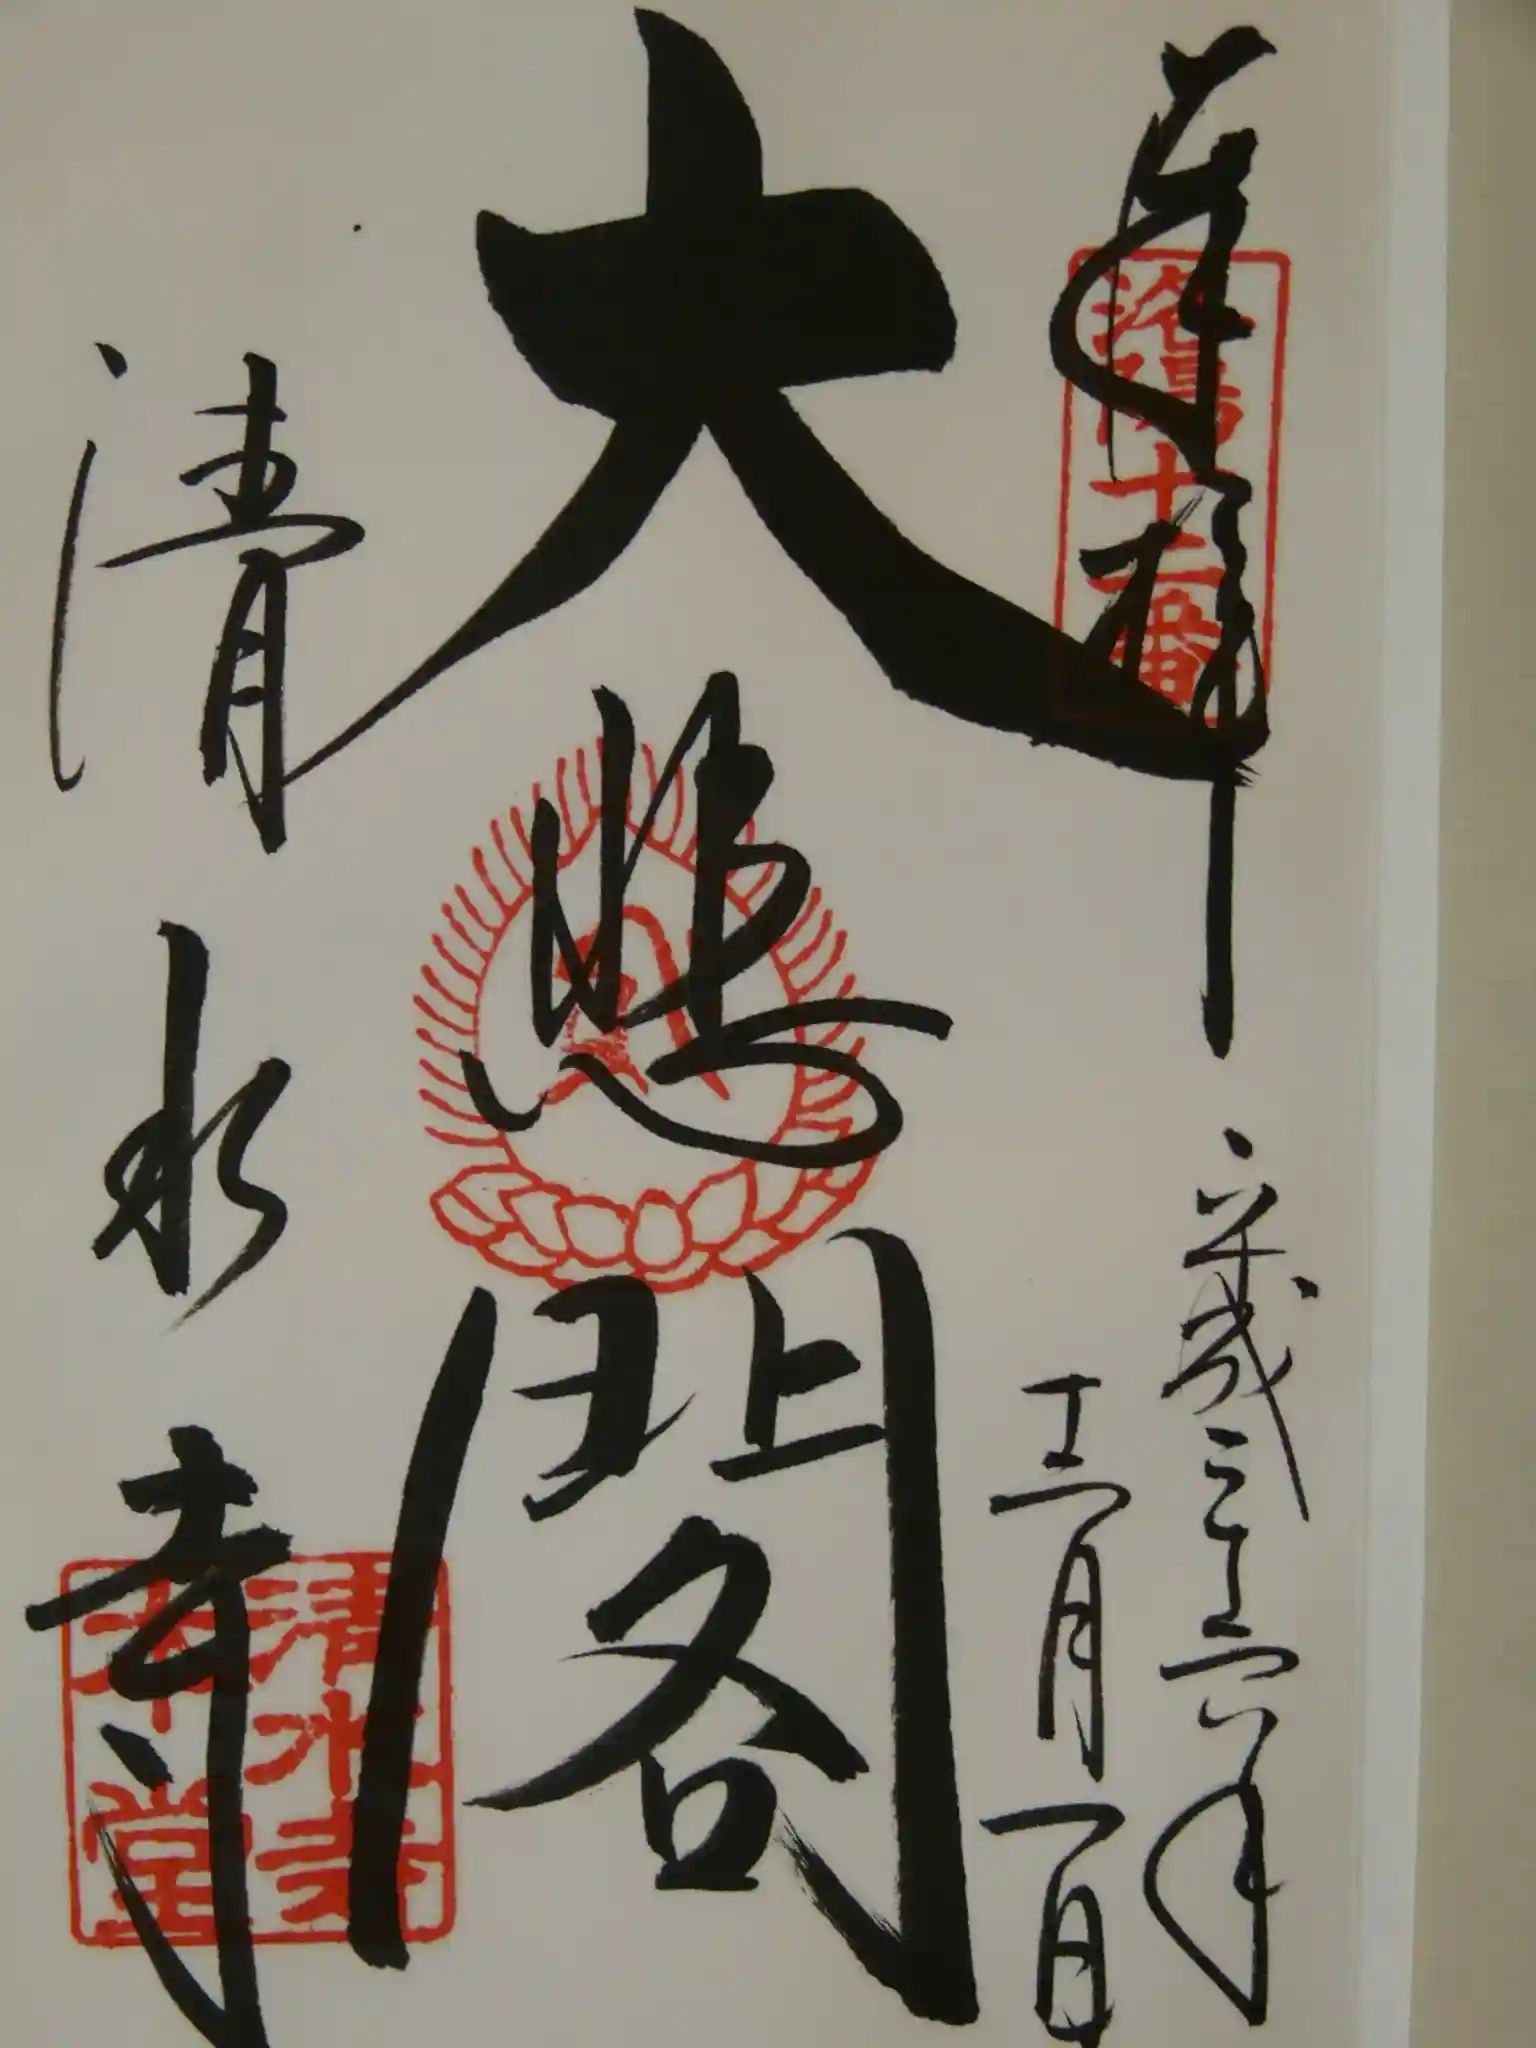 奉拝
洛陽十二番
平成二十六年
十二月一日
大悲閣
清水寺
清水寺
本堂